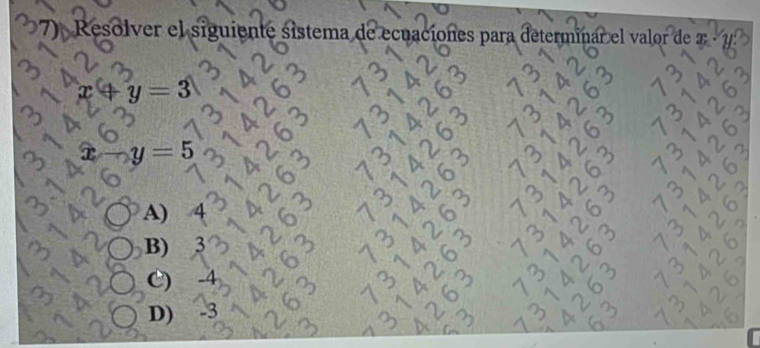 7) Resolver el siguiente sistema de ecuaciones para determinar el valor de x · y:
x + y = 3
x - y = 5
A) 4
B) 3
C) -4
D) -3